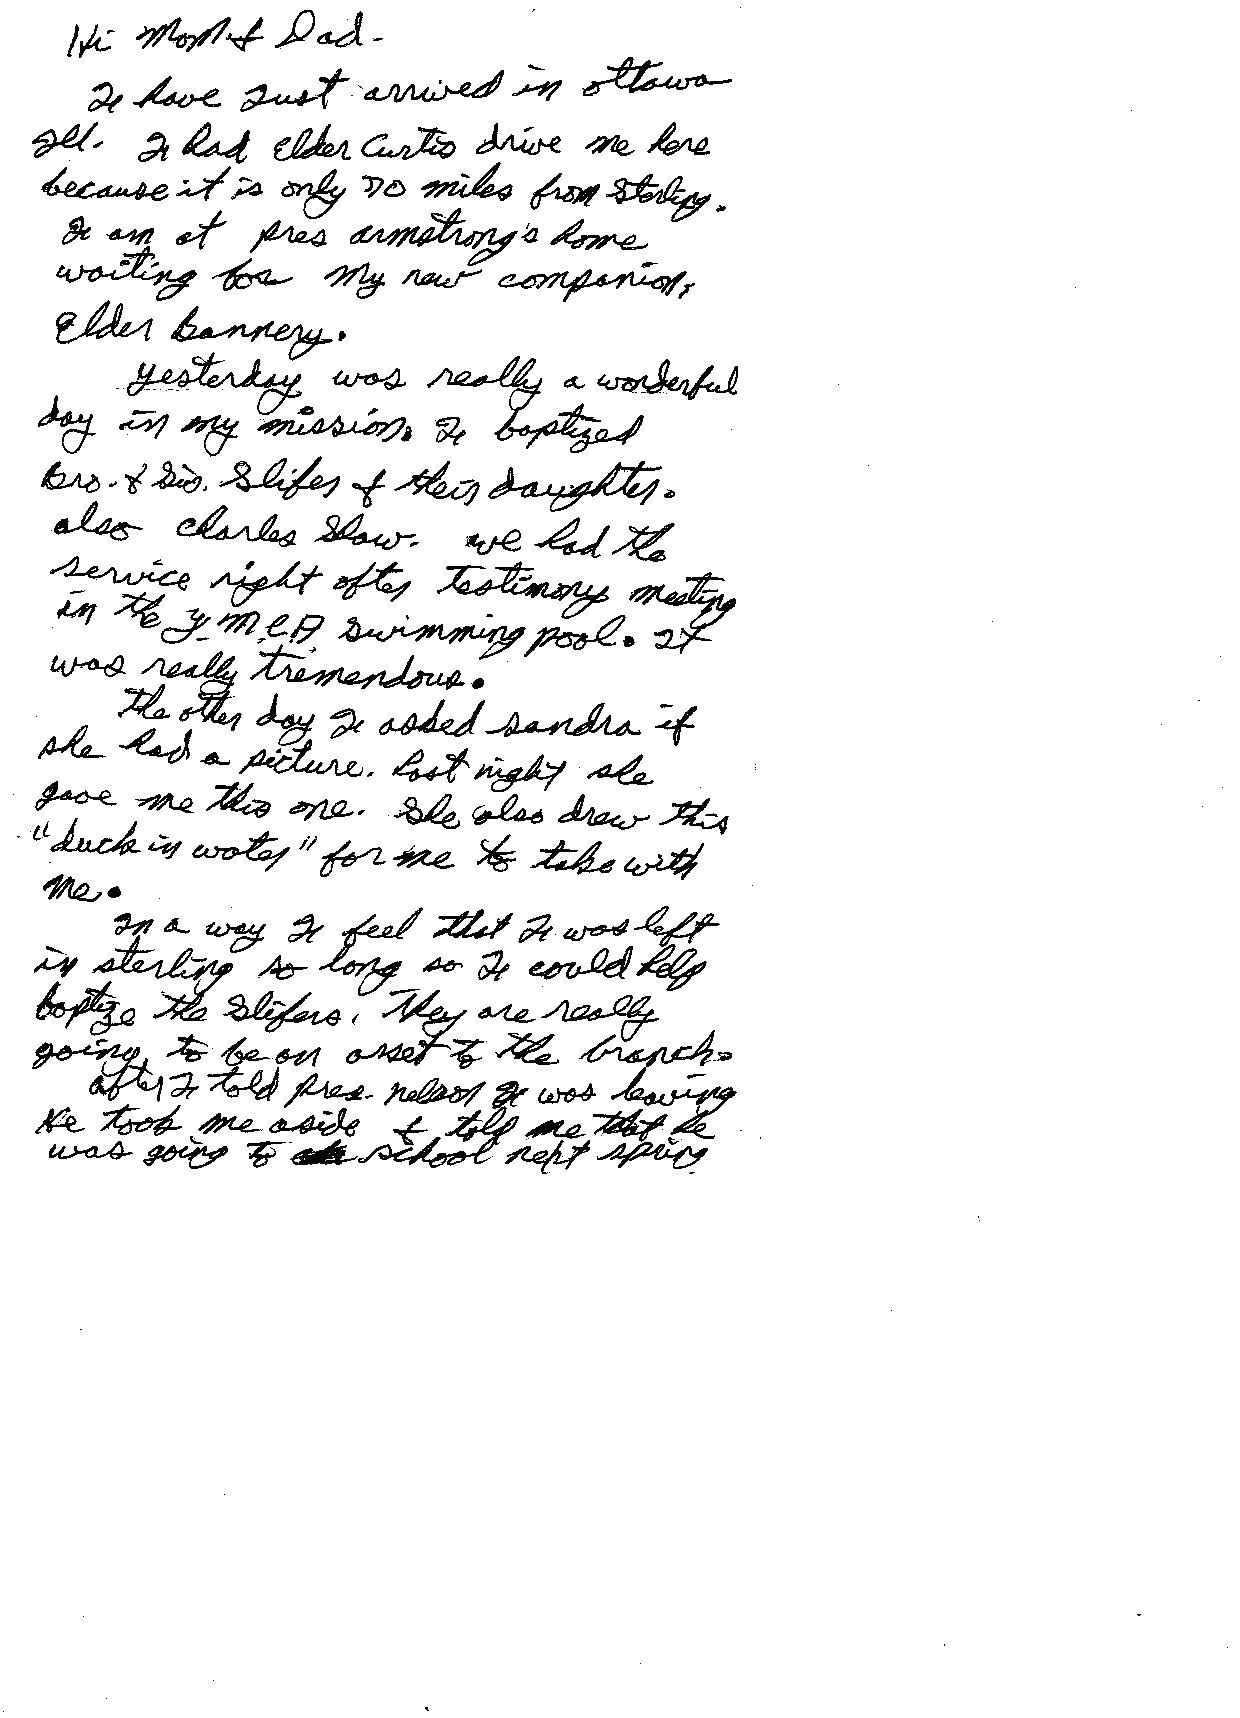 Hi Mom & Dad -
I have Just arrived in Ottawa
Ill. I had Elder Curtis drive me here
because it is only 70 miles from Sterling.
I am at Pres Armstrong's home
waiting for my new companion,
Elder
Yesterday was really a wonderful
day in my mission. I baptized
Bro. & Sis. Slifer & their daughter.
also Charles Shaw. We had the
service right after testimony meeting
in the Y.M.C.A. swimming pool. It
was really tremendous.
The other day I asked Sandra if
she had a picture. Last night she
gave me this one. She also drew this
"duck in water" for me to take with
me.
In a way I feel that I was left
in sterling so long so I could help
baptize the Slifers. They are really
going to be an asset to the branch.
after I told Pres. Nelson I was leaving
He took me aside & told me that he
was going to school next spring